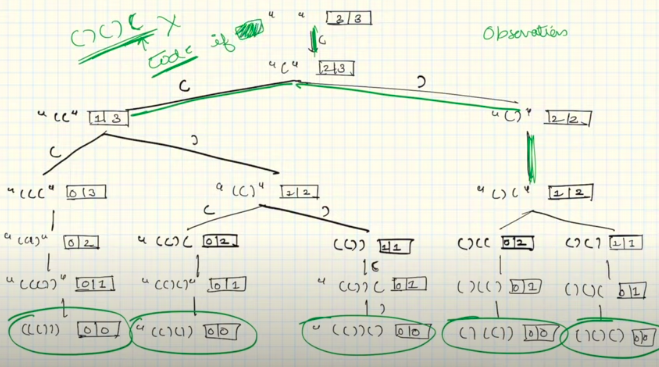 ()()( X
code if
" " 3|3
(
Observations
"(" 2|3
( )
"((" 1|3
"()" 2|2
( )
"(((" 0|3
"(()" 1|2
"()(" 1|2
( )
0|2
"(()( 0|2
(()) 1|1
()(( 0|2
()() 1|1
(
"((())" 0|1
"(()()" 0|1
"(())( 0|1
()(() 0|1
()()( 0|1
)
((())) 0|0
"(()()) 0|0
"(())() 0|0
()(()) 0|0
()()() 0|0